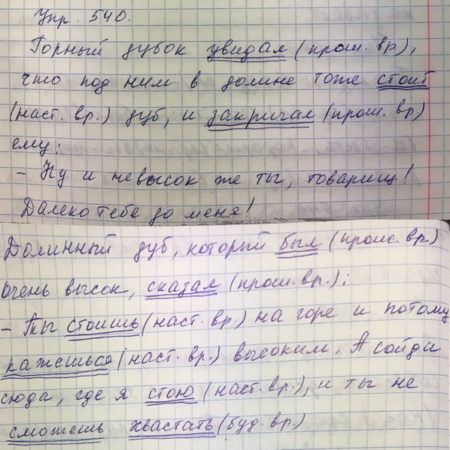 Упр. 540.
Горный дубок увидал (прош. вр),
что под ним в долине тоже стоит
(наст. вр.) дуб, и закричал (прош. вр)
ему:
- Ну и невысок же ты, товарищ!
Далеко тебе до меня!
Долинный дуб, который был (прош. вр.)
очень высок, сказал (прош. вр.):
- Ты стоишь (наст. вр) на горе и потому
кажешься (наст. вр.) высоким. А сойди
сюда, где я стою (наст. вр.), и ты не
сможешь хвастать (буд. вр)